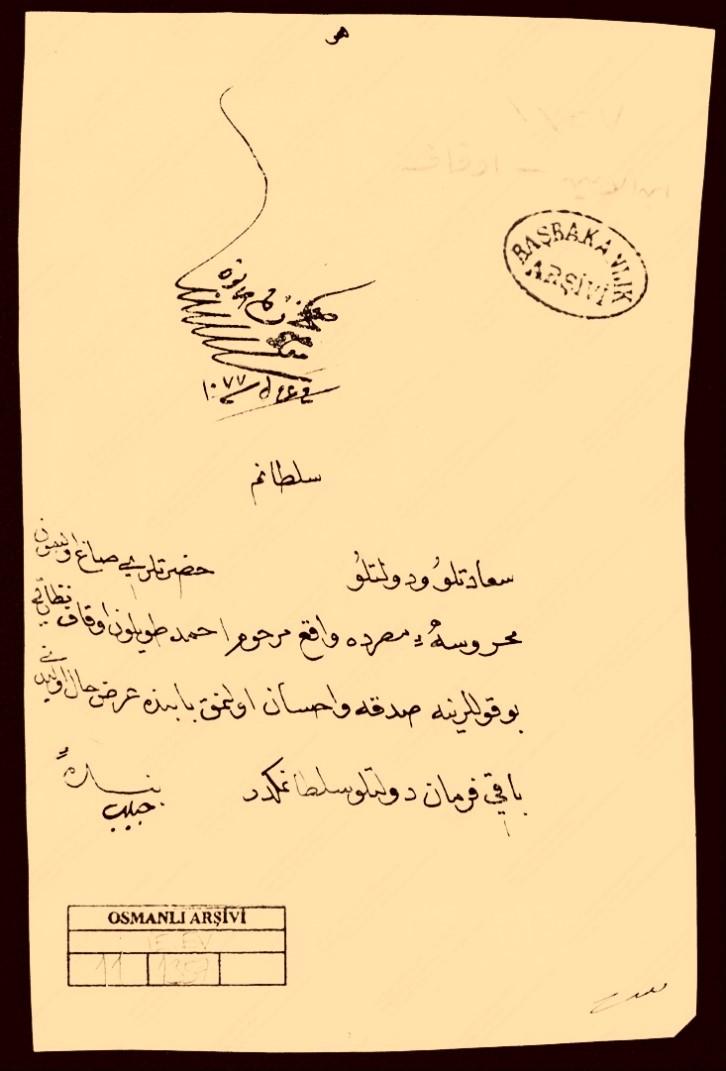 هو
BAŞBAKANLIK
ARŞİVİ
١٠٧٧
سلطانم
سعادتلو و دولتلو حضرتلری صاغ اولسون
محروسهٔ مصرده واقع مرحوم احمد طویلون اوقاف نظارتی
بو قوللرینه صدقه و احسان اولنمق بابنده عرض حال اولندی
باقی فرمان دولتلو سلطانمکدر
بنده
حبیب
OSMANLI ARŞİVİ
İE EV
11 1357